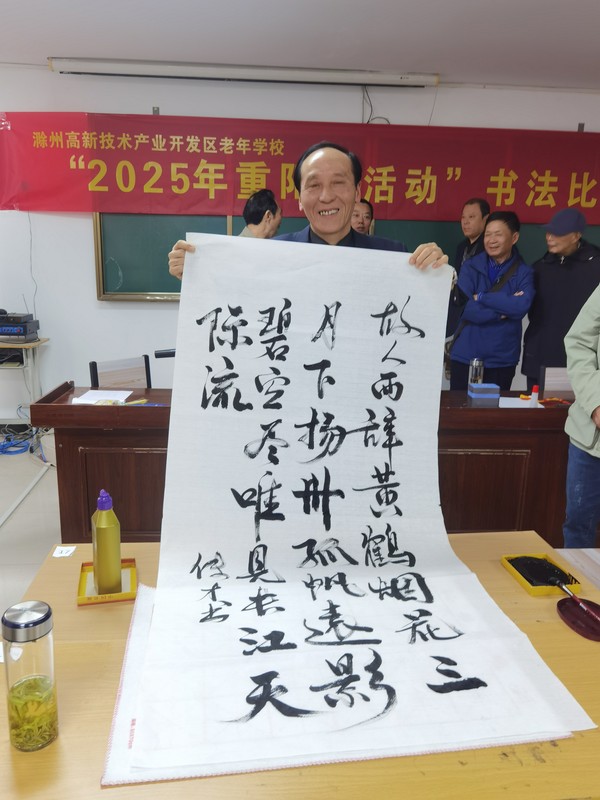 滁州高新技术产业开发区老年学校
“2025年重阳 活动”书法比
故人西辞黄鶴烟花三
月下扬州孤帆遠影
碧空尽唯見长江天
际流
才书